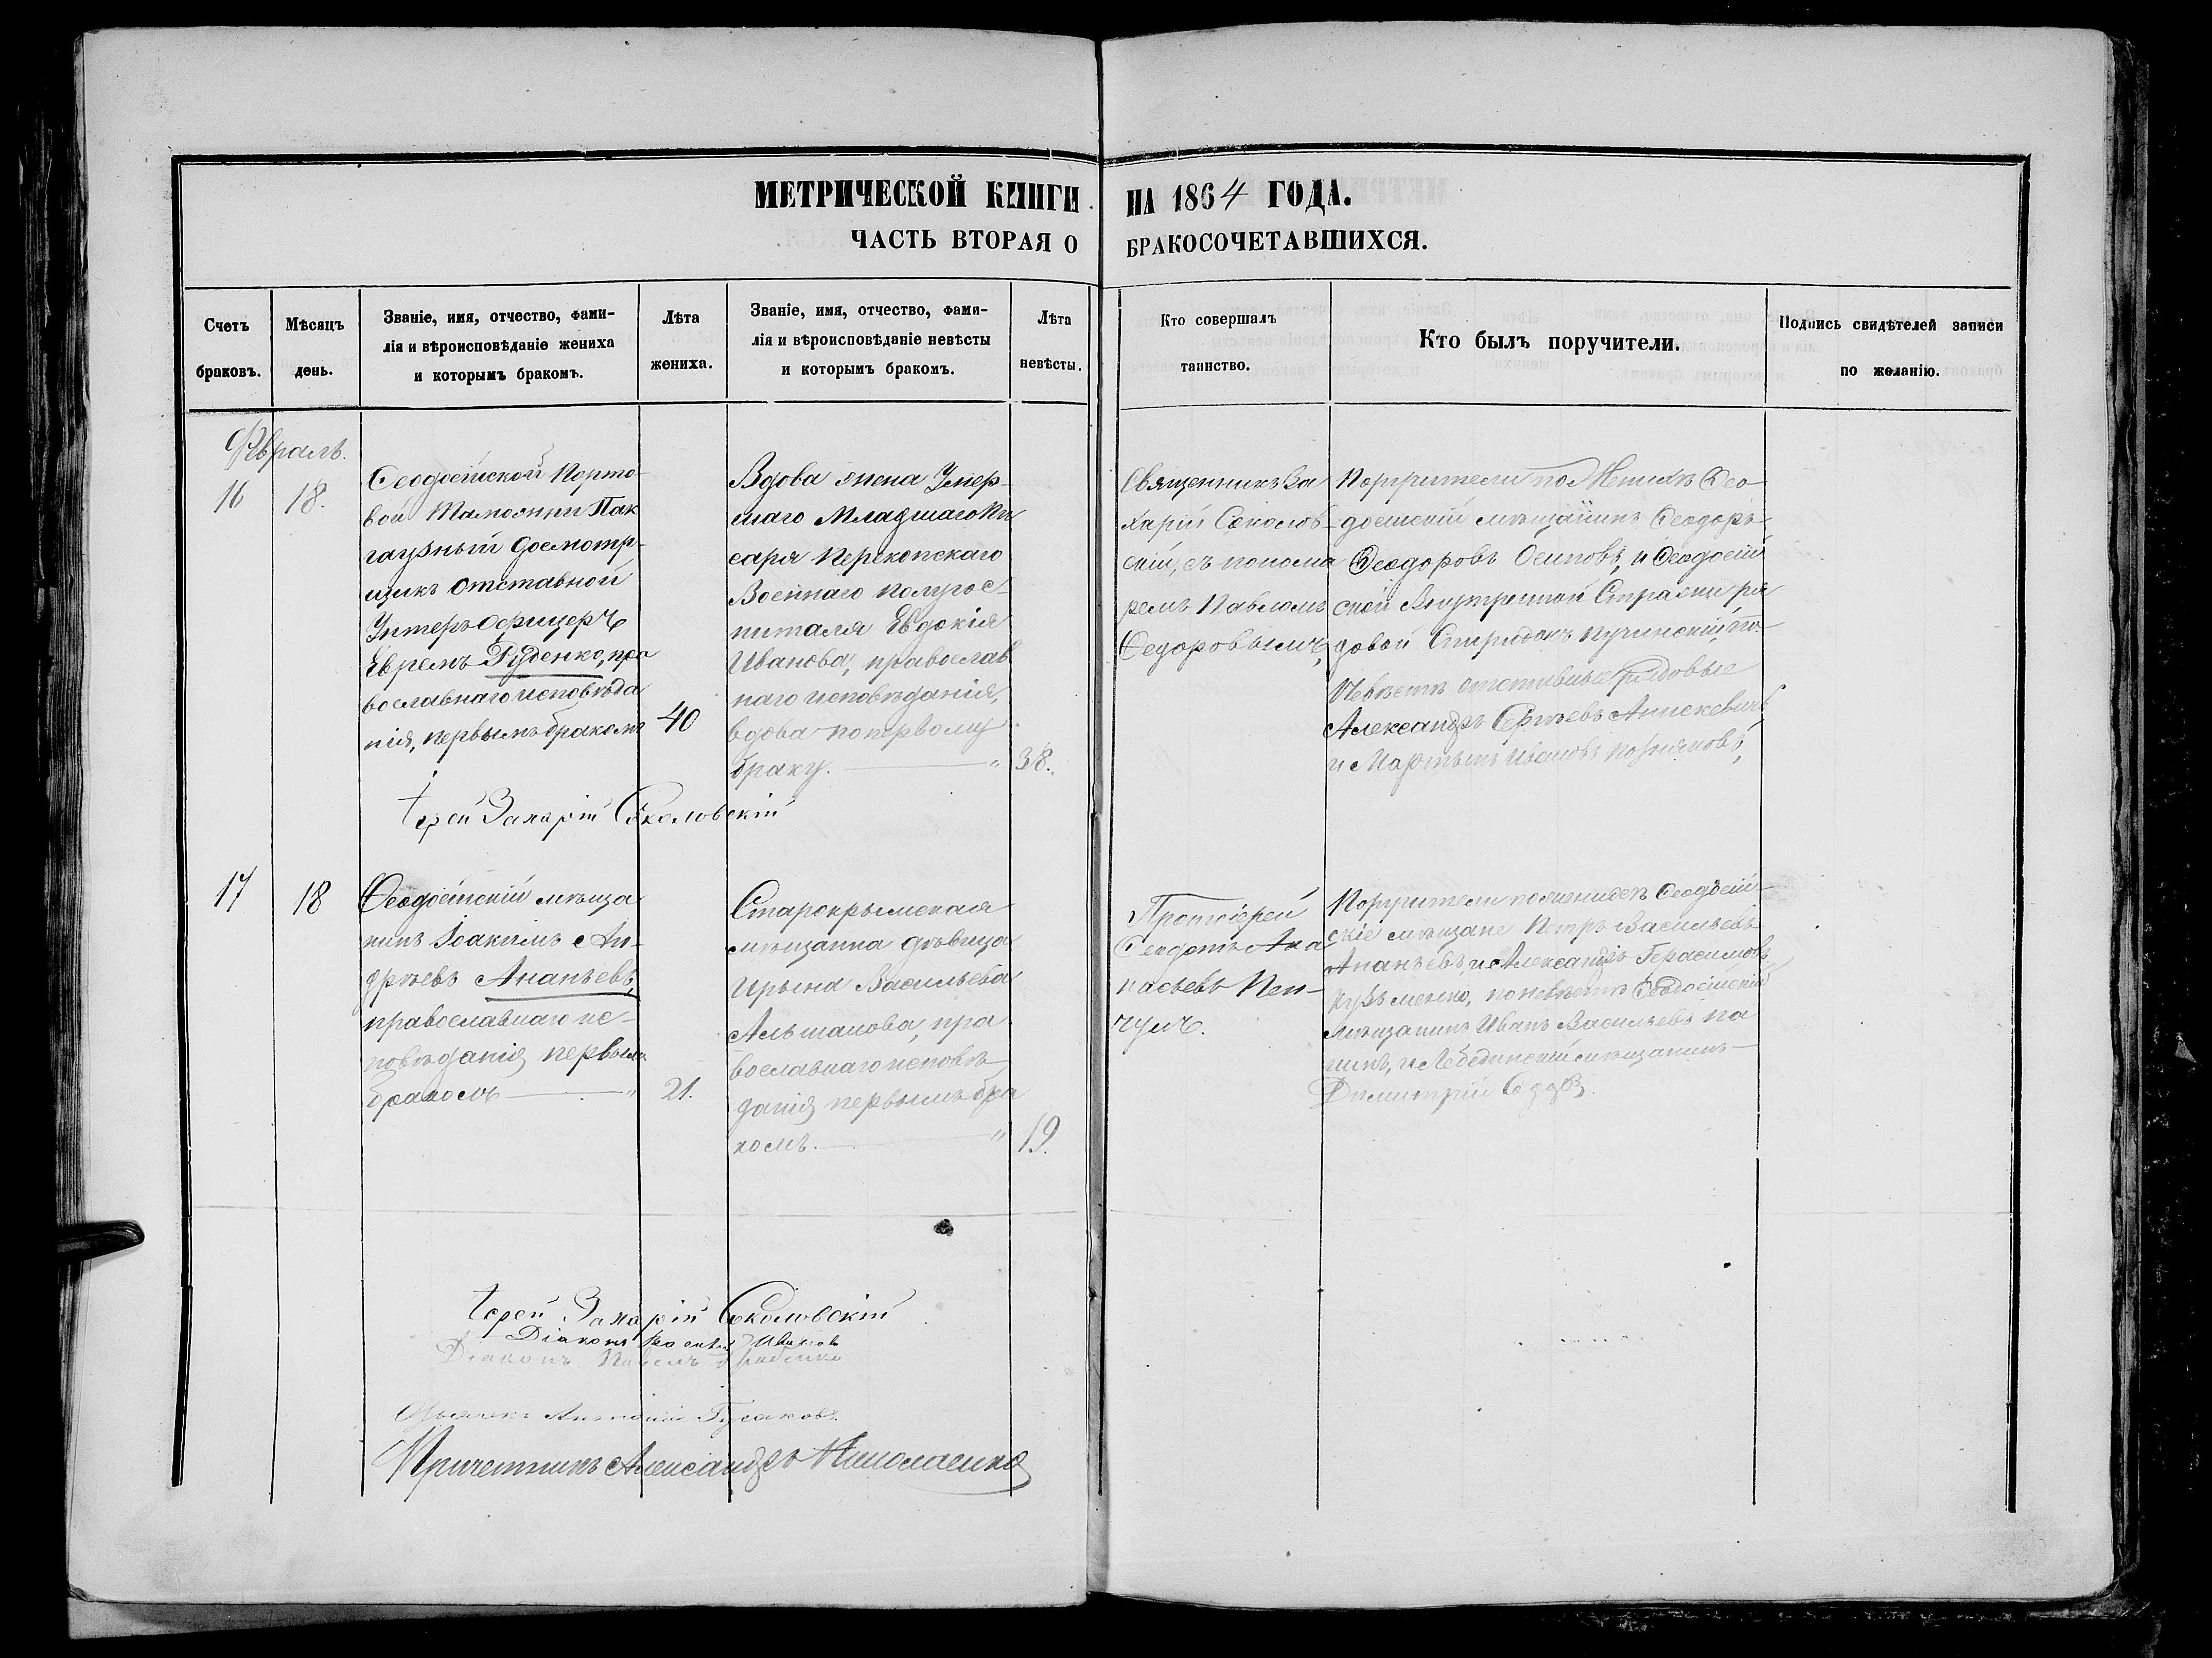 МЕТРИЧЕСКОЙ КНИГИ НА 1864 ГОДА.
ЧАСТЬ ВТОРАЯ О БРАКОСОЧЕТАВШИХСЯ.
Счетъ
браковъ.
Мѣсяцъ
день.
Званіе, имя, отчество, фами-
лія и вѣроисповѣданіе жениха
и которымъ бракомъ.
Лѣта
жениха.
Званіе, имя, отчество, фами-
лія и вѣроисповѣданіе невѣсты
и которымъ бракомъ.
Лѣта
невѣсты.
Кто совершалъ
таинство.
Кто былъ поручители.
Подпись свидѣтелей записи
по желанію.
Февраль.
16
18.
Ѳеодосійской Порто-
вой Таможни Пак
гаузный досмотр-
щикъ отставной
Унтеръ Офицеръ
Евремъ Руденко, пра
вославнаго исповѣда
нія, первымъ бракомъ
40
Вдова жена Умер-
шаго Младшаго Пи
саря Перекопскаго
Военнаго полугос-
питаля Евдокія
Иванова, православ
наго исповѣданія,
вдова по первому
браку. "
38.
Священникъ За
харій Соколов-
скій, съ понома
ремъ Павломъ
Ѳедоровымъ,
Поручители по Женихѣ Ѳео-
досійскій мѣщанинъ Ѳеодоръ
Ѳеодоровъ Осиповъ, и Ѳеодосій
ской Внутренней Стражи ря
довой Спиридонъ Пучинскій, по
Невѣстѣ отставные рядовые
Александръ Сергѣевъ
и Ивановъ
Іерей Захарій Соколовскій
17
18
Ѳеодосійскій мѣща
нинъ Іоакимъ Ан-
дреевъ Ананьевъ,
православнаго ис-
повѣданія первымъ
бракомъ "
21.
Старокрымская
мѣщанка дѣвица
Ирына Васильева
Альшанова, пра
вославнаго исповѣ-
данія первымъ бра
комъ. "
19.
Протоіерей
Ѳеодотъ Ана
насьевъ Пен-
чулъ.
Поручители по женихѣ Ѳеодосій-
скіе мѣщане Петръ Васильевъ
Ананьевъ, и Александръ Герасимовъ
Кузьменко, по невѣстѣ Ѳеодосійскій
мѣщанинъ Иванъ Васильевъ Па
нинъ, и Лебединскій мѣщанинъ
Димитрій
Іерей Захарій Соколовскій
Діаконъ Ивановъ
Діаконъ Павелъ
Дьячекъ Антоній Гусаковъ
Причетникъ Александръ Николаенко